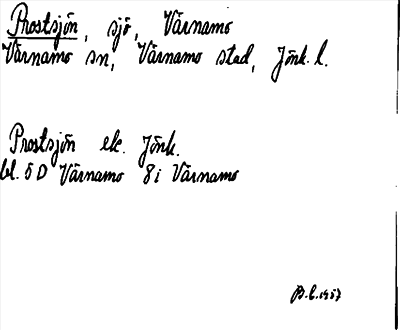 Prostsjön, sjö, Värnamo
Värnamo sn, Värnamo stad, Jönk. l.
Prostsjön ek. Jönk.
bl. 5 D Värnamo 8 i Värnamo
B.E. 1957